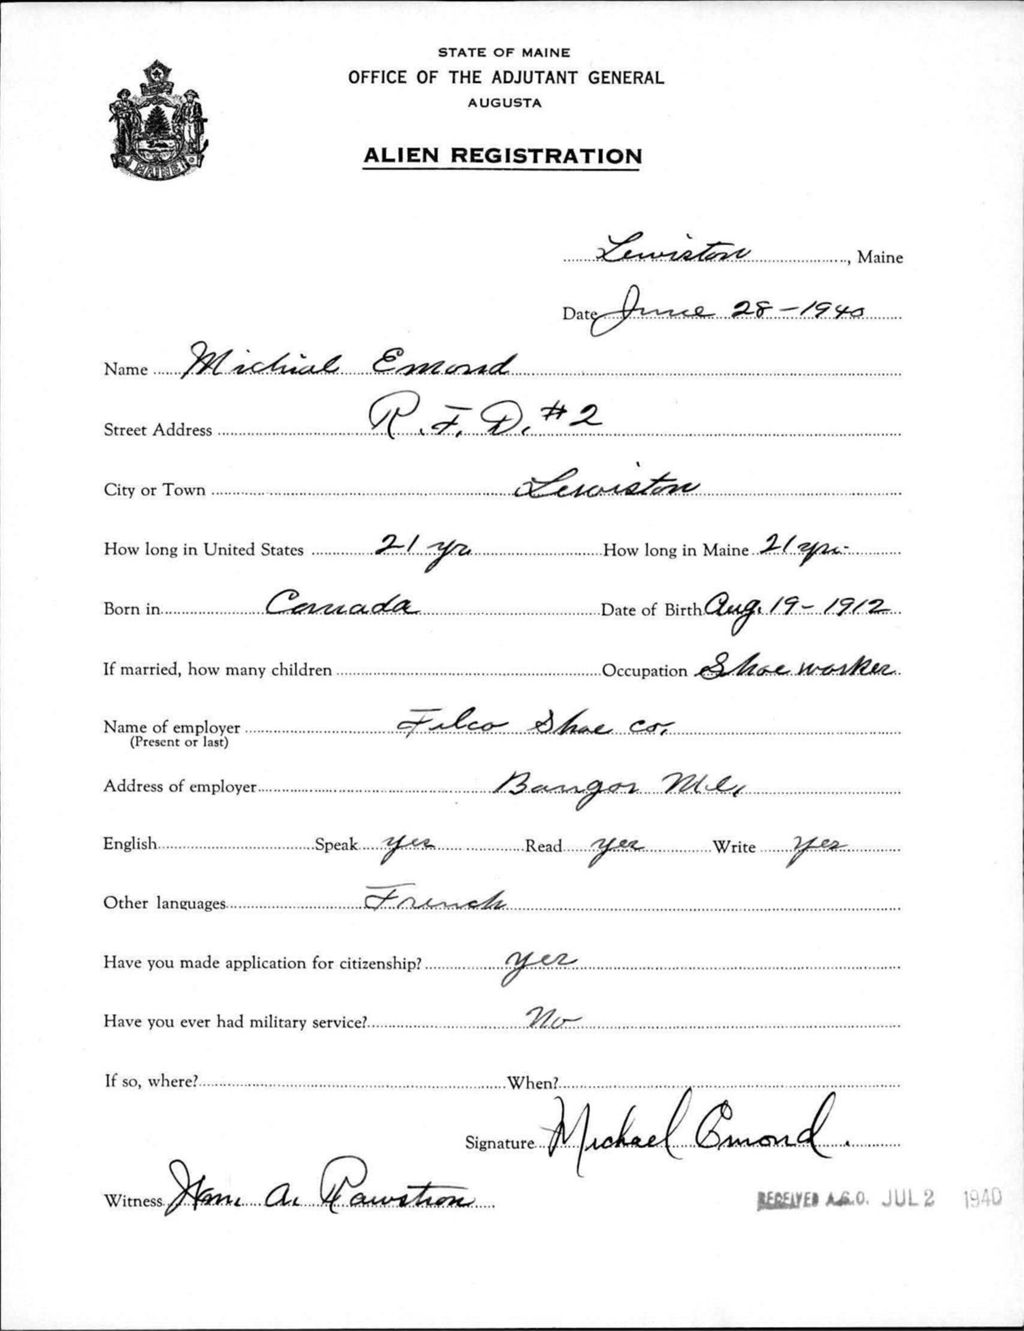 STATE OF MAINE
OFFICE OF THE ADJUTANT GENERAL
AUGUSTA
ALIEN REGISTRATION
MAINE
Lewiston, Maine
Date June 28-1940
Name Michial Emond
Street Address R.F.D. #2
City or Town Lewiston
How long in United States 21 yr How long in Maine 21 yrs-
Born in Canada Date of Birth Aug. 19-1912
If married, how many children Occupation Shoe worker
Name of employer Filco Shoe Co.
(Present or last)
Address of employer Bangor Me.
English Speak yes Read yes Write yes
Other languages French
Have you made application for citizenship? yes
Have you ever had military service? No
If so, where? When?
Signature Michael Emond.
Witness Wm. A. Rawstron
RECEIVED A.G.O. JUL 2 1940